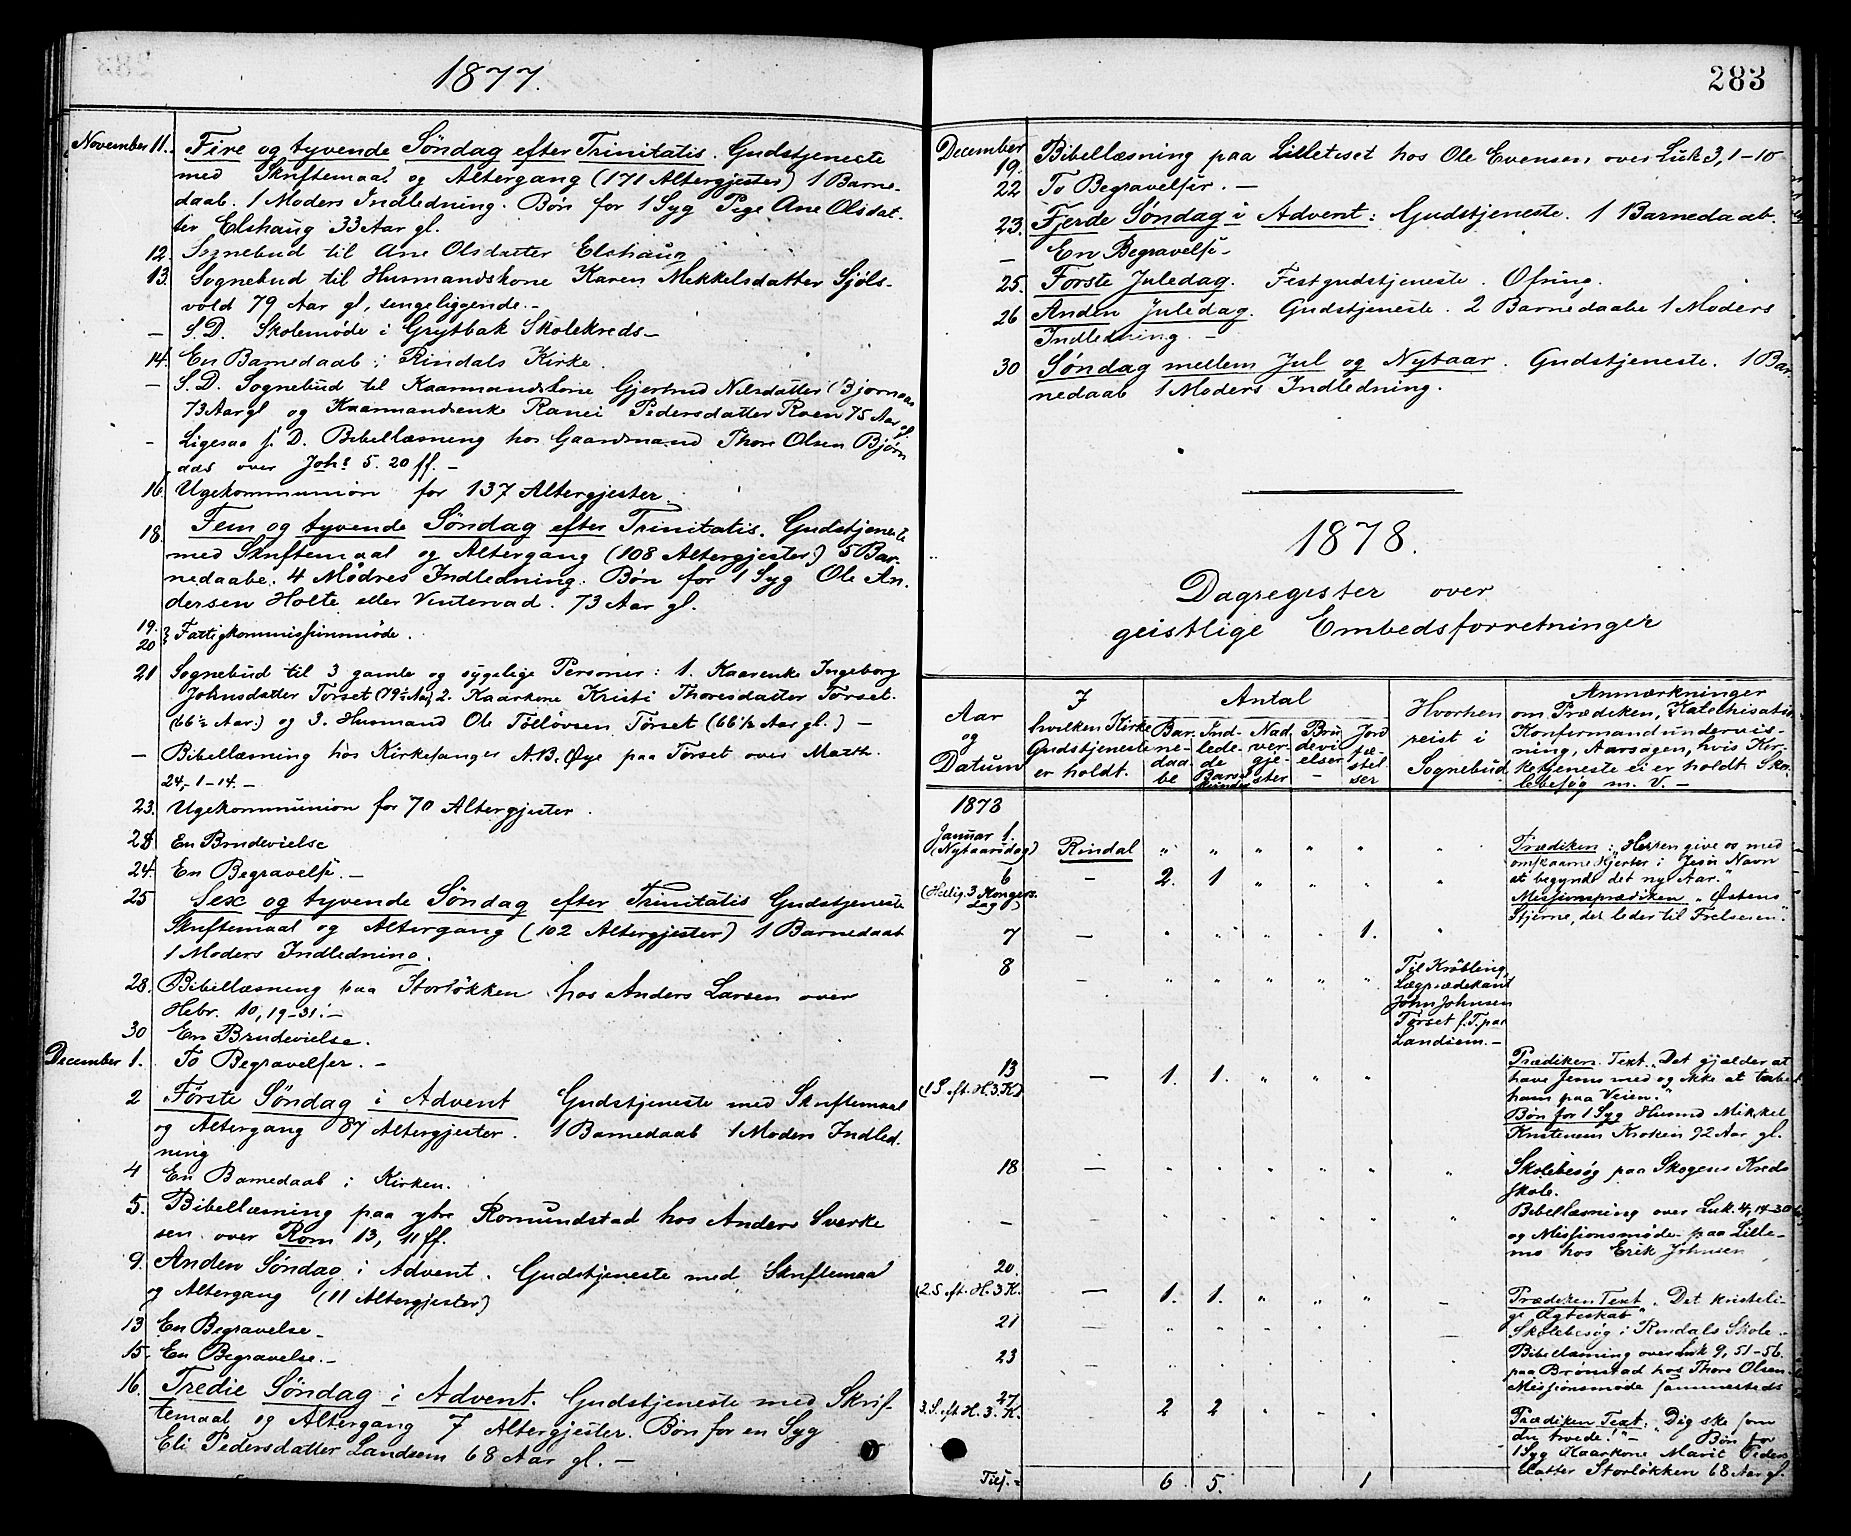 1877.
November 11. Fire og tyvende Søndag efter Trinitatis. Gudstjeneste
med Skriftemaal og Altergang (171 Altergjester) 1 Barne-
daab. 1 Moders Indledning. Bøn for 1 Syg Pige Ane Olsdat-
ter Elshaug 33 Aar gl.
12. Sognebud til Ane Olsdatter Elshaug
13. Sognebud til Husmandskone Karen Mikkelsdatter Sjøls-
vold 79 Aar gl, sengeliggende.-
— S.D. Skolemøde i Grytbak Skolekreds-
14. En Barnedaab i Rindals Kirke.
— S.D. Sognebud til Kaarmandskone Gjertrud Nilsdatter Bjørnaas
73 Aar gl og Kaarmandsenke Ranei Pedersdatter Roen 75 Aar gl.
- Ligesaa s. D. Bibellæsning hos Gaardmand Thore Olsen Bjørn
aas over Joh: 5. 20 ff. -
16. Ugekommunion for 137 Altergjester.
18. Fem og tyvende Søndag efter Trinitatis. Gudstjeneste
med Skriftemaal og Altergang (108 Altergjester) 5 Bar-
nedaabe. 4 Mødres Indledning. Bøn for 1 Syg Ole An-
dersen Holte eller Vintervad. 73 Aar gl.
19.
20 } Fattigkommissionmøde.
21 Sognebud til 3 gamle og sygelige Personer: 1. Kaarenke Ingeborg
Johnsdatter Tørset (79½ Aar) 2. Kaarkone Kristi Thoresdatter Tørset.
(66½ Aar.) og 3. Husmand Ole Tølløvsen Tørset (66½ Aar gl.) -
— Bibellæsning hos Kirkesanger A.B. Øye paa Tørset over Matth.
24,-1-14.-
23. Ugekommunion for 70 Altergjester.
23 En Brudevielse
24. En Begravelse. -
25 Sex og tyvende Søndag efter Trinitatis Gudstjeneste
Skriftemaal og Altergang (102 Altergjester) 1 Barnedaab
1 Moders Indledning.
28. Bibellæsning paa Storløkken hos Anders Larsen over
Hebr. 10, 19-31.-
30 En Brudevielse.
December 1. To Begravelser. -
2 Første Søndag i Advent Gudstjeneste med Skriftemaal
og Altergang 87 Altergjester. 1 Barnedaab 1 Moders Indled.
ning
4 En Barnedaab i Kirken.
5. Bibellæsning paa ytre Romundstad hos Anders Sverke
sen over Rom 13, 11 ff.
9. Anden Søndag i Advent. Gudstjeneste med Skriftemaal
og Altergang (11 Altergjester)
13 En Begravelse -
15. En Begravelse. -
16. Tredie Søndag i Advent. Gudstjeneste med Skrif-
temaal og Altergang 7 Altergjester. Bøn for en Syg
Eli Pedersdatter Landsem 68 Aar gl. -
283
December
19. Bibellæsning paa Lilletiset hos Ole Evensen over Luk 3, 1-10
22 To Begravelser. -
23. Fjerde Søndag i Advent: Gudstjeneste. 1 Barnedaab.
— En Begravelse -
25. Første Juledag. Festgudstjeneste. Ofring.
26 Anden Juledag. Gudstjeneste. 2 Barnedaabe 1 Moders
Indledning. -
30 Søndag mellem Jul og Nytaar. Gudstjeneste. 1 Bar-
nedaab 1 Moders Indledning.
1878.
Dagregister over
geistlige Embedsforretninger
Aar og Datum
I hvilken Kirke Gudstjeneste er holdt.
Antal
Barnedaabe
Indledede Barselkvinder
Nadvergjester
Brudevielser
Jordfæstelser
Hvorhen reist i Sognebud
Anmærkninger
om Prædiken, Katechisation
Konfirmandundervis-
ning, Aarsagen, hvis Kir-
ketjeneste ei er holdt. Sko-
lebesøg m. V. -
1878
Januar 1.
(Nytaarsdag) Rindal " " " " " "
Prædiken: "Herren give os med
omskaarne Hjerter i Jesu Navn
at begynde det ny Aar."
6 — 2. 1 " " " "
(Hellig 3 Kongers
dag)
Missionsprædiken "Østens
Stjerne, der leder til Frelseren."
7 — " " " " 1. "
8 — " " " " "
Til Krøbling,
Lægprædikant
John Johnsen
Tørset f.T. paa
Landsem. -
13 — 1. 1. " " "
(1 S. eft. H.3.K)
Prædiken. Text. "Det gjælder at
have Jesus med og ikke at tabe
ham paa Veien."
Bøn for 1 Syg Husmd Mikkel
Kristensen Kroken 72 Aar gl.
18 — " " " " " "
Skolebesøg paa Skogens Kreds
skole.
— " " " " " "
Bibellæsning over Luk. 4, 14-30
og Missionsmøde paa Lille-
mo hos Erik Johnsen
20.
(2.S eft. H.3 K. — 1. 1. " " " -
Prædiken Text "Det kristeli-
ge Ægteskab"
21 — " " " " " —
Skolebesøg i Rindals Skole.
23 — " " " " "
Bibellæsning over Luk 9, 51-56
paa Brønstad hos Thore Olsen
Missionsmøde sammesteds
27
3. S. eft H. 3. K. 2 2 " - "
Prædiken Text: "Dig ske som
du troede!" - Bøn for
1 Syg Kaarkone Marit Peders
datter Storløkken 68 Aar gl.
Tils. = 6. 5. 1